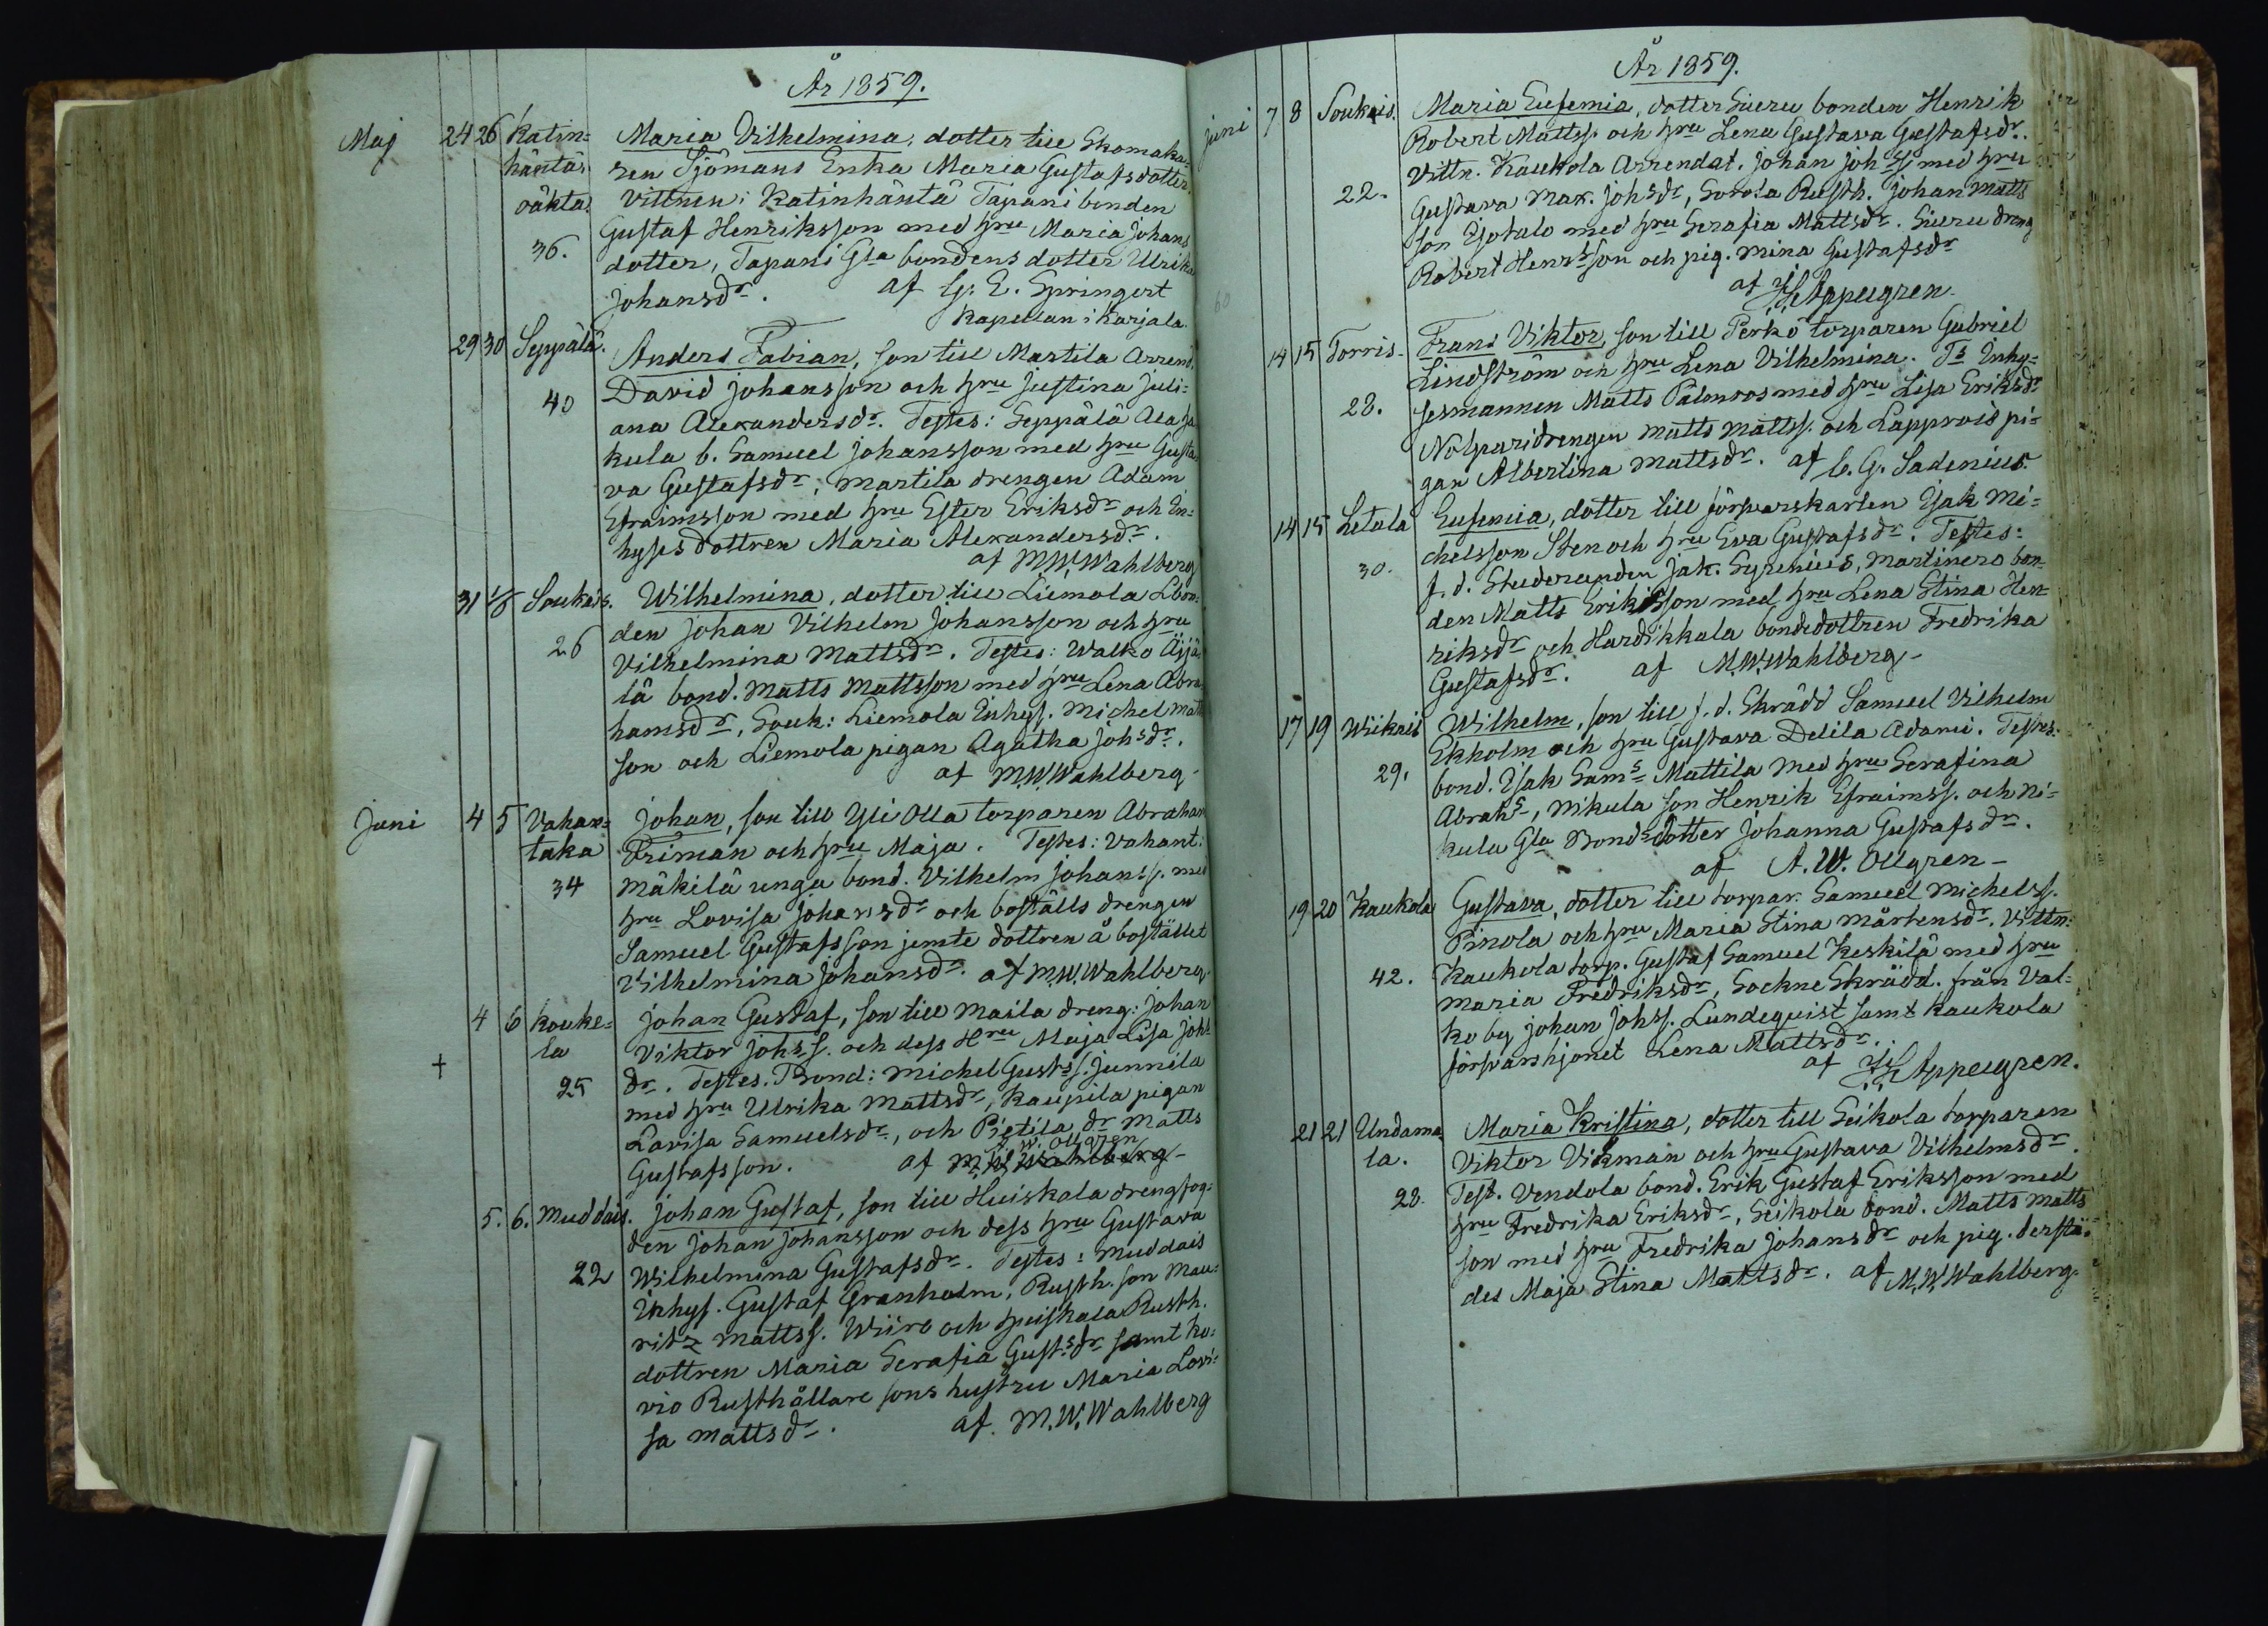 År 1859.
Maj 24 26 Katin= Maria Vilhelmina, dotter till Skomaka=
häntä. ren Sjömans Enka Maria Gustafsdotter.
oäkta. Vittnen: Katinhäntä Tapani bonden
Gustaf Henriksson med hru Maria Johans
36. dotter, Tapani Gla bondens dotter Ulrika
Johansdr. af G. E. Springert
Kapellan i Karjala.
29 30 Seppälä. Anders Fabian, son till Martila Arrend.
David Johansson och hru Justina Juli=
40 ana Alexandersdr. Testes: Seppälä Ala
kula b. Samuel Johansson med hru Gusta
va Gustafsdr, Martila drengen Adam
Efraimsson med hru Ester Eriksdr och In=
hyses dottren Maria Alexandersdr.
af M.W. Wahlberg
31 1/6 Soukais. Wilhelmina, dotter till Liemola bon=
den Johan Vilhelm Johansson och hru
26 Vilhelmina Mattsdr. Testes: Walko Äijä=
lä bond. Matts Mattsson med hru Lena Abra
hamsdr, Souk: Liemola Inhys. Michel Matts
son och Liemola pigan Agatha Johsdr.
af M.W. Wahlberg.
Juni 4 5 Vahan= Johan, son till Yli Olla torparen Abraham
taka Friman och hru Maja. Testes: Vahant:
34 Mäkilä unga bond. Vilhelm Johanss. med
hru Lovisa Johansdr och boställs drengen
Samuel Gustafsson jemte dottren å bostället
Vilhelmina Johansdr. af M.W. Wahlberg.
4 6 Kouke= Johan Gustaf, son till Maila dreng: Johan
la Viktor Johss. och dess Hru Maja Lisa Johs
+ 25 dr. Testes. Bond: Michel Gustss. Junnila
med hru Ulrika Mattsdr, Kaupila pigan
Lovisa Samuelsdr, och Pietila dr Matts
A. W. Ollgren
Gustafsson. af M.W. Wahlberg
5. 6. Muddais. Johan Gustaf, son till Huiskala drengfog=
den Johan Johansson och dess hru Gustava
22 Wilhelmina Gustafsdr. Testes: Muddais
Inhys. Gustaf Granholm, Rusth. son Mau=
ritz Mattss. Wiiro och Huiskala Rusth.
dottren Maria Serafia Gustsdr samt Ko=
vio Rusthållare sons hustru Maria Lovi=
sa Mattsdr. af M.W. Wahlberg
År 1859.
Juni 7 8 Soukais. Maria Eufemia, dotter Sieru bonden Henrik
Robert Mattss. och hru Lena Gustava Gustafsdr.
Vittn. Kaukola Arrendat. Johan Johss med hru
22. Gustava Mar. Johsdr, Sorola Rusth. Johan Matts
son Isotalo med hru Serafia Mattsdr. Sieru dreng
Robert Henrsson och pig. Mina Gustafsdr
af Appelgren.
60
14 15 Torris. Frans Viktor, son till Perkö torparen Gabriel
Lindström och hru Lena Vilhelmina. Ts Inhy=
28. sesmannen Matts Palmros med hru Lisa Eriksdr
Nohparidrengen Matts Mattss. och Lapprois pi=
gan Albertina Mattsdr. af C. G. Sadenius.
14 15 Letala Eufemia, dotter till försvarskarlen Isak Mi=
chelsson Sten och hru Eva Gustafsdr. Testes:
30. f. d. Studeranden Jak. Syrenius, Martinero bon=
den Matts Eriksson med hru Lena Stina Hen=
riksdr och Hardikkala bondedottren Fredrika
Gustafsdr. af M.W. Wahlberg-
17 19 Wiikais Wilhelm, son till f. d. Skrädd Samuel Vilhelm
Ekholm och hru Gustava Delila Adami. Testes.
29. bond. Isak Sams Mattila med hru Serafina
Abrahs, Nikula son Henrik Efraimss. och Ni=
kula Gla Bondsdotter Johanna Gustafsdr.
af A.W. Ollgren-
19 20 Kaukola Gustava, dotter till torpar. Samuel Michelss.
Pinola och hru Maria Stina Mårtensdr. Vittn:
42. Kaukola torp. Gustaf Samuel Keskilä med hru
Maria Fredriksdr, Sockne Skrädd. från Val=
ko by Johan Johss. Lundequist samt Kaukola
försvarshjonet Lena Mattsdr.
af Appelgren.
21 21 Undama Maria Kristina, dotter till Seikola torparen
la. Viktor Vikman och hru Gustava Vilhelmsdr.
28. Test. Vendola bond. Erik Gustaf Eriksson med
hru Fredrika Eriksdr, Seikola bond. Matts Matts
son med hru Fredrika Johansdr och pig. derstä=
des Maja Stina Mattsdr. af M.W. Wahlberg.